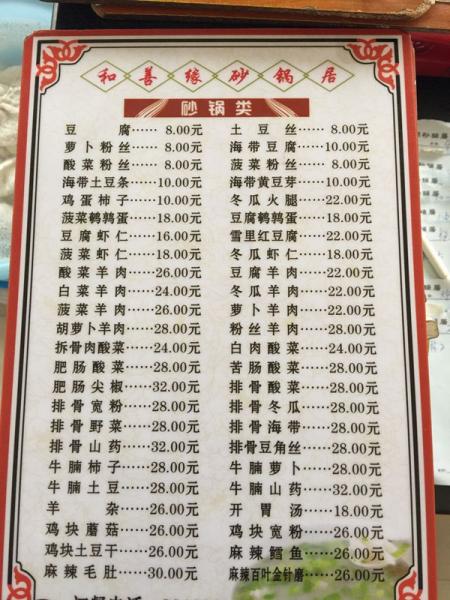 和善缘砂锅居
砂锅类
豆腐……8.00元
萝卜粉丝……8.00元
酸菜粉丝……8.00元
海带土豆条……10.00元
鸡蛋柿子……10.00元
菠菜鹌鹑蛋……18.00元
豆腐虾仁……16.00元
菠菜虾仁……18.00元
酸菜羊肉……26.00元
白菜羊肉……24.00元
菠菜羊肉……26.00元
胡萝卜羊肉……28.00元
拆骨肉酸菜……24.00元
肥肠酸菜……28.00元
肥肠尖椒……32.00元
排骨宽粉……28.00元
排骨野菜……28.00元
排骨山药……32.00元
牛腩柿子……28.00元
牛腩土豆……28.00元
羊杂……26.00元
鸡块蘑菇……26.00元
鸡块土豆干……26.00元
麻辣毛肚……30.00元
土豆丝……8.00元
海带豆腐……10.00元
菠菜粉丝……8.00元
海带黄豆芽……10.00元
冬瓜火腿……22.00元
豆腐鹌鹑蛋……18.00元
雪里红豆腐……22.00元
冬瓜虾仁……18.00元
豆腐羊肉……22.00元
冬瓜羊肉……22.00元
萝卜羊肉……22.00元
粉丝羊肉……28.00元
白肉酸菜……24.00元
苦肠酸菜……28.00元
排骨酸菜……28.00元
排骨冬瓜……28.00元
排骨海带……28.00元
排骨豆角丝……28.00元
牛腩萝卜……28.00元
牛腩山药……32.00元
开胃汤……18.00元
鸡块宽粉……26.00元
麻辣鳕鱼……26.00元
麻辣百叶金针磨……26.00元